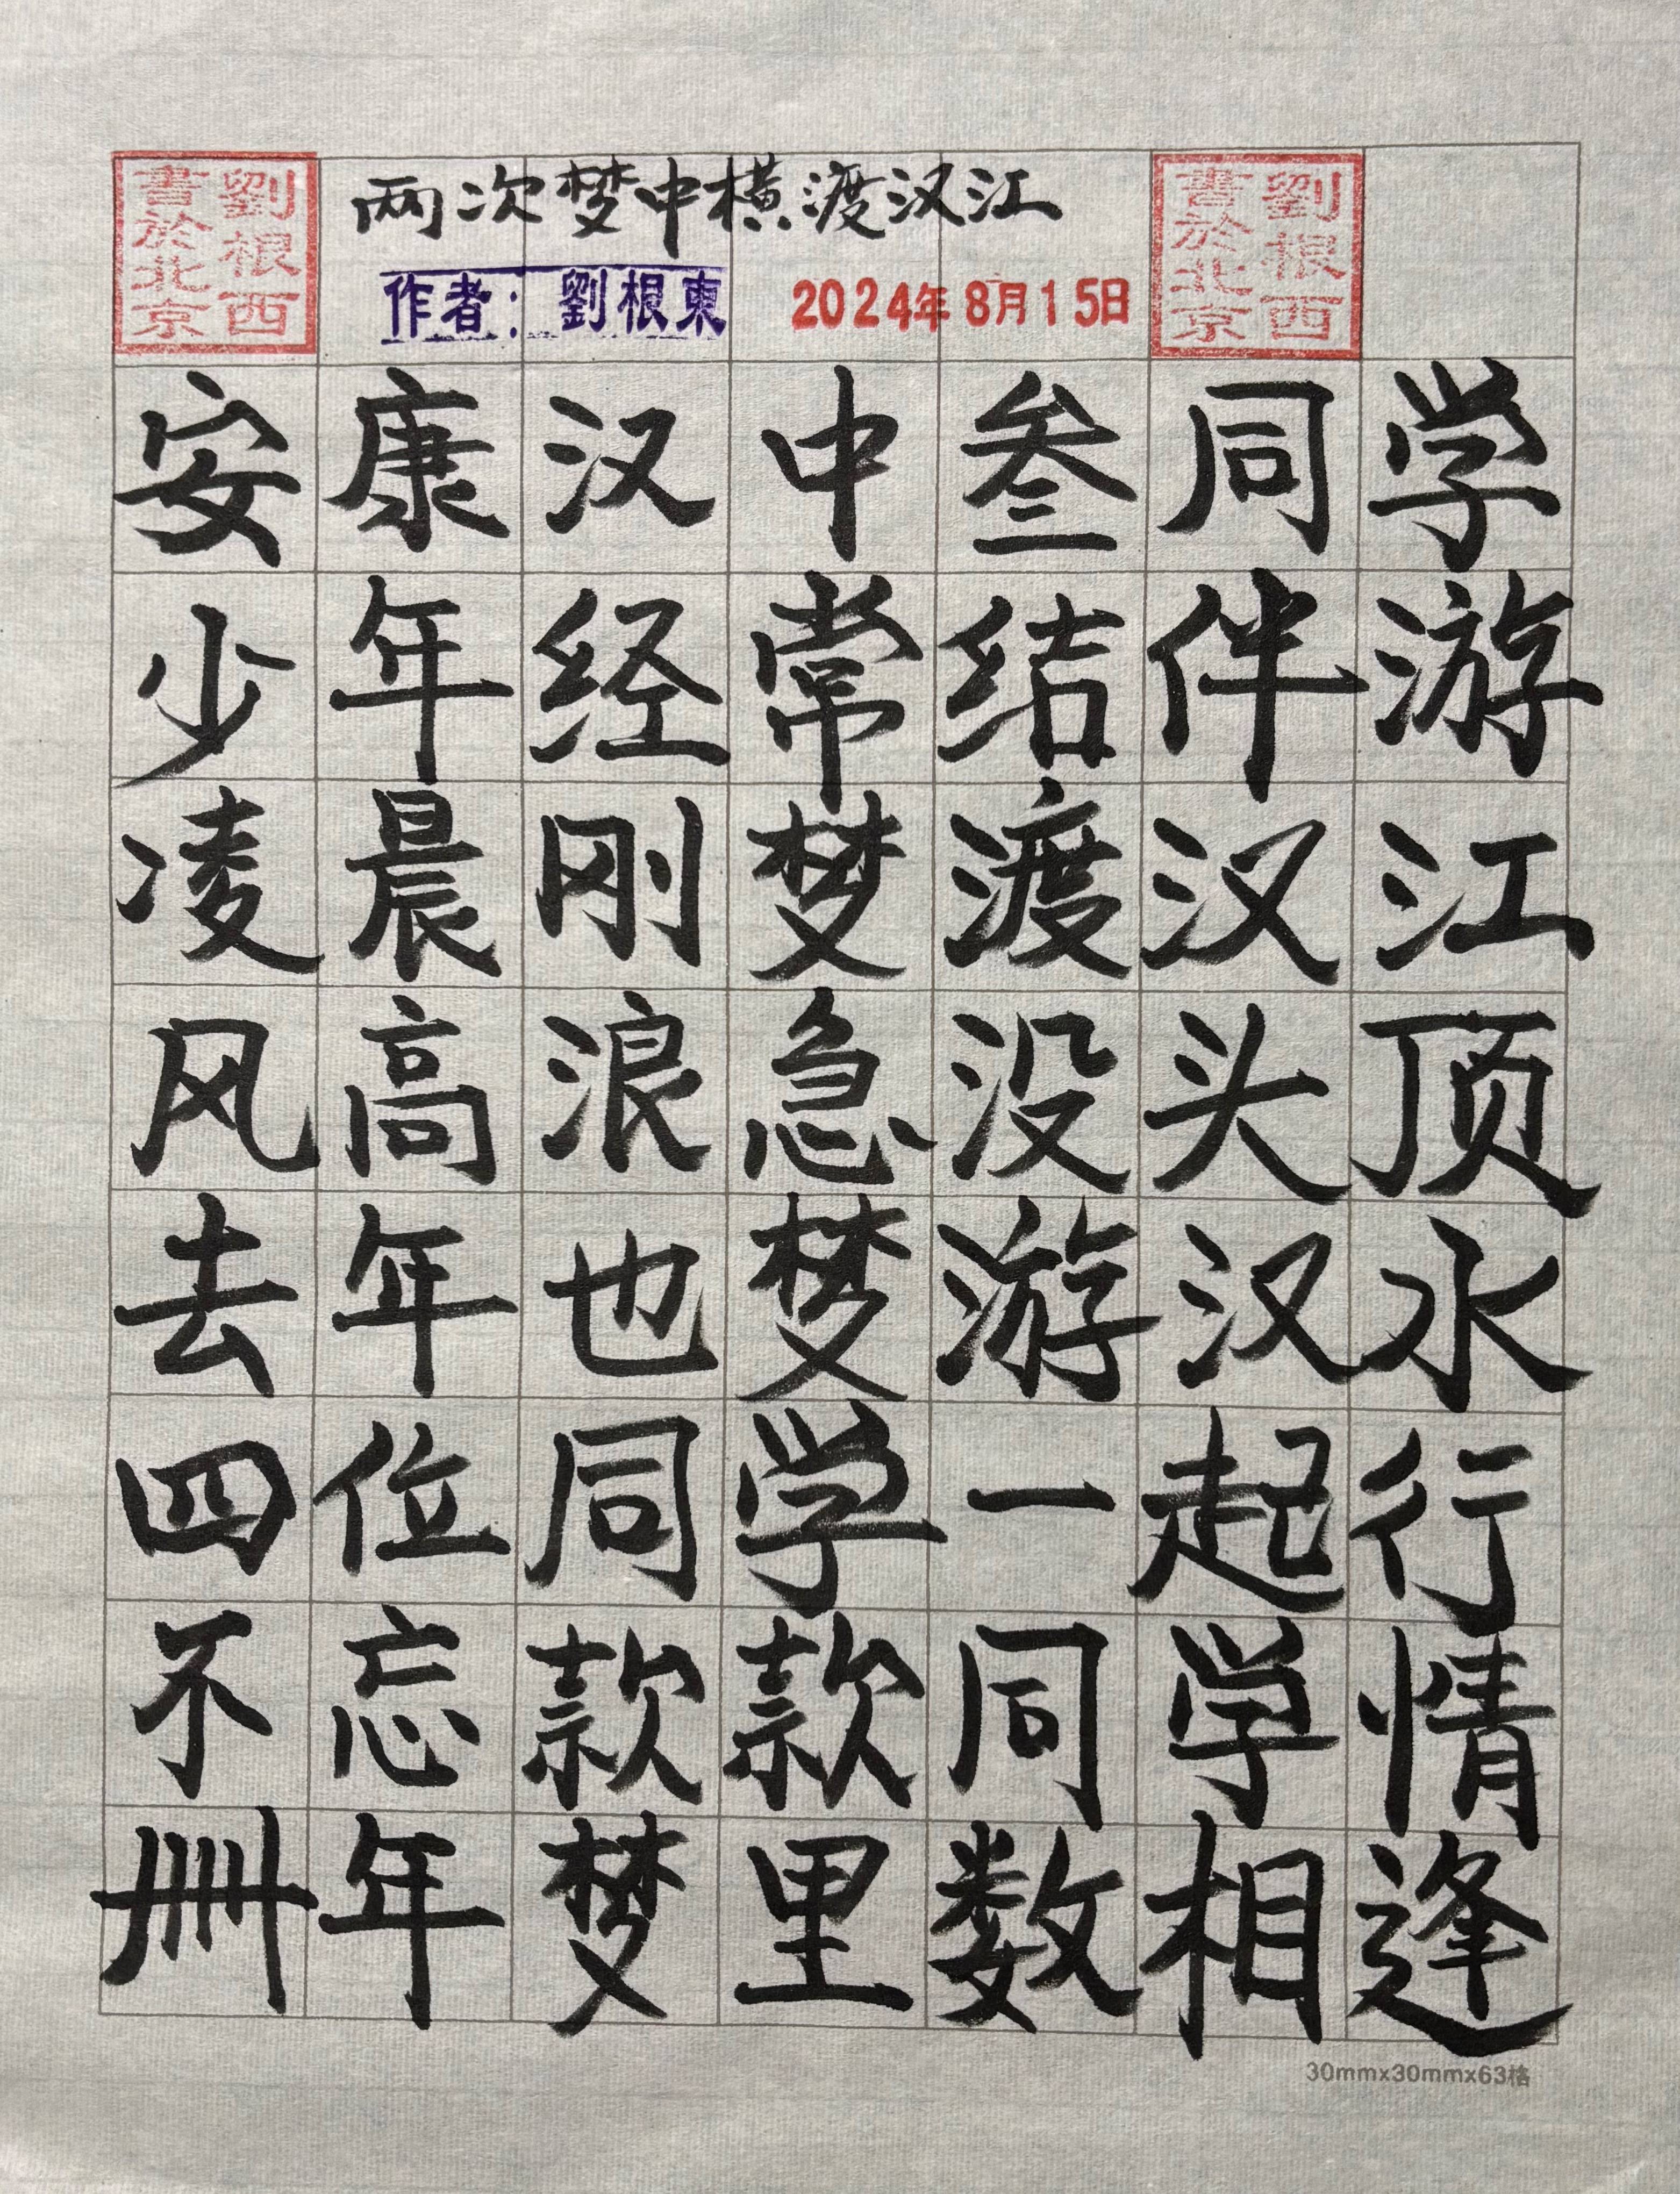 两次梦中横渡汉江
劉根西
書於北京
作者：劉根東
2024年8月15日
劉根西
書於北京
安康汉中叁同学
少年经常结伴游
凌晨刚梦渡汉江
风高浪急没头顶
去年也梦游汉水
四位同学一起行
不忘款款同学情
卌年梦里数相逢
30mmx30mmx63格